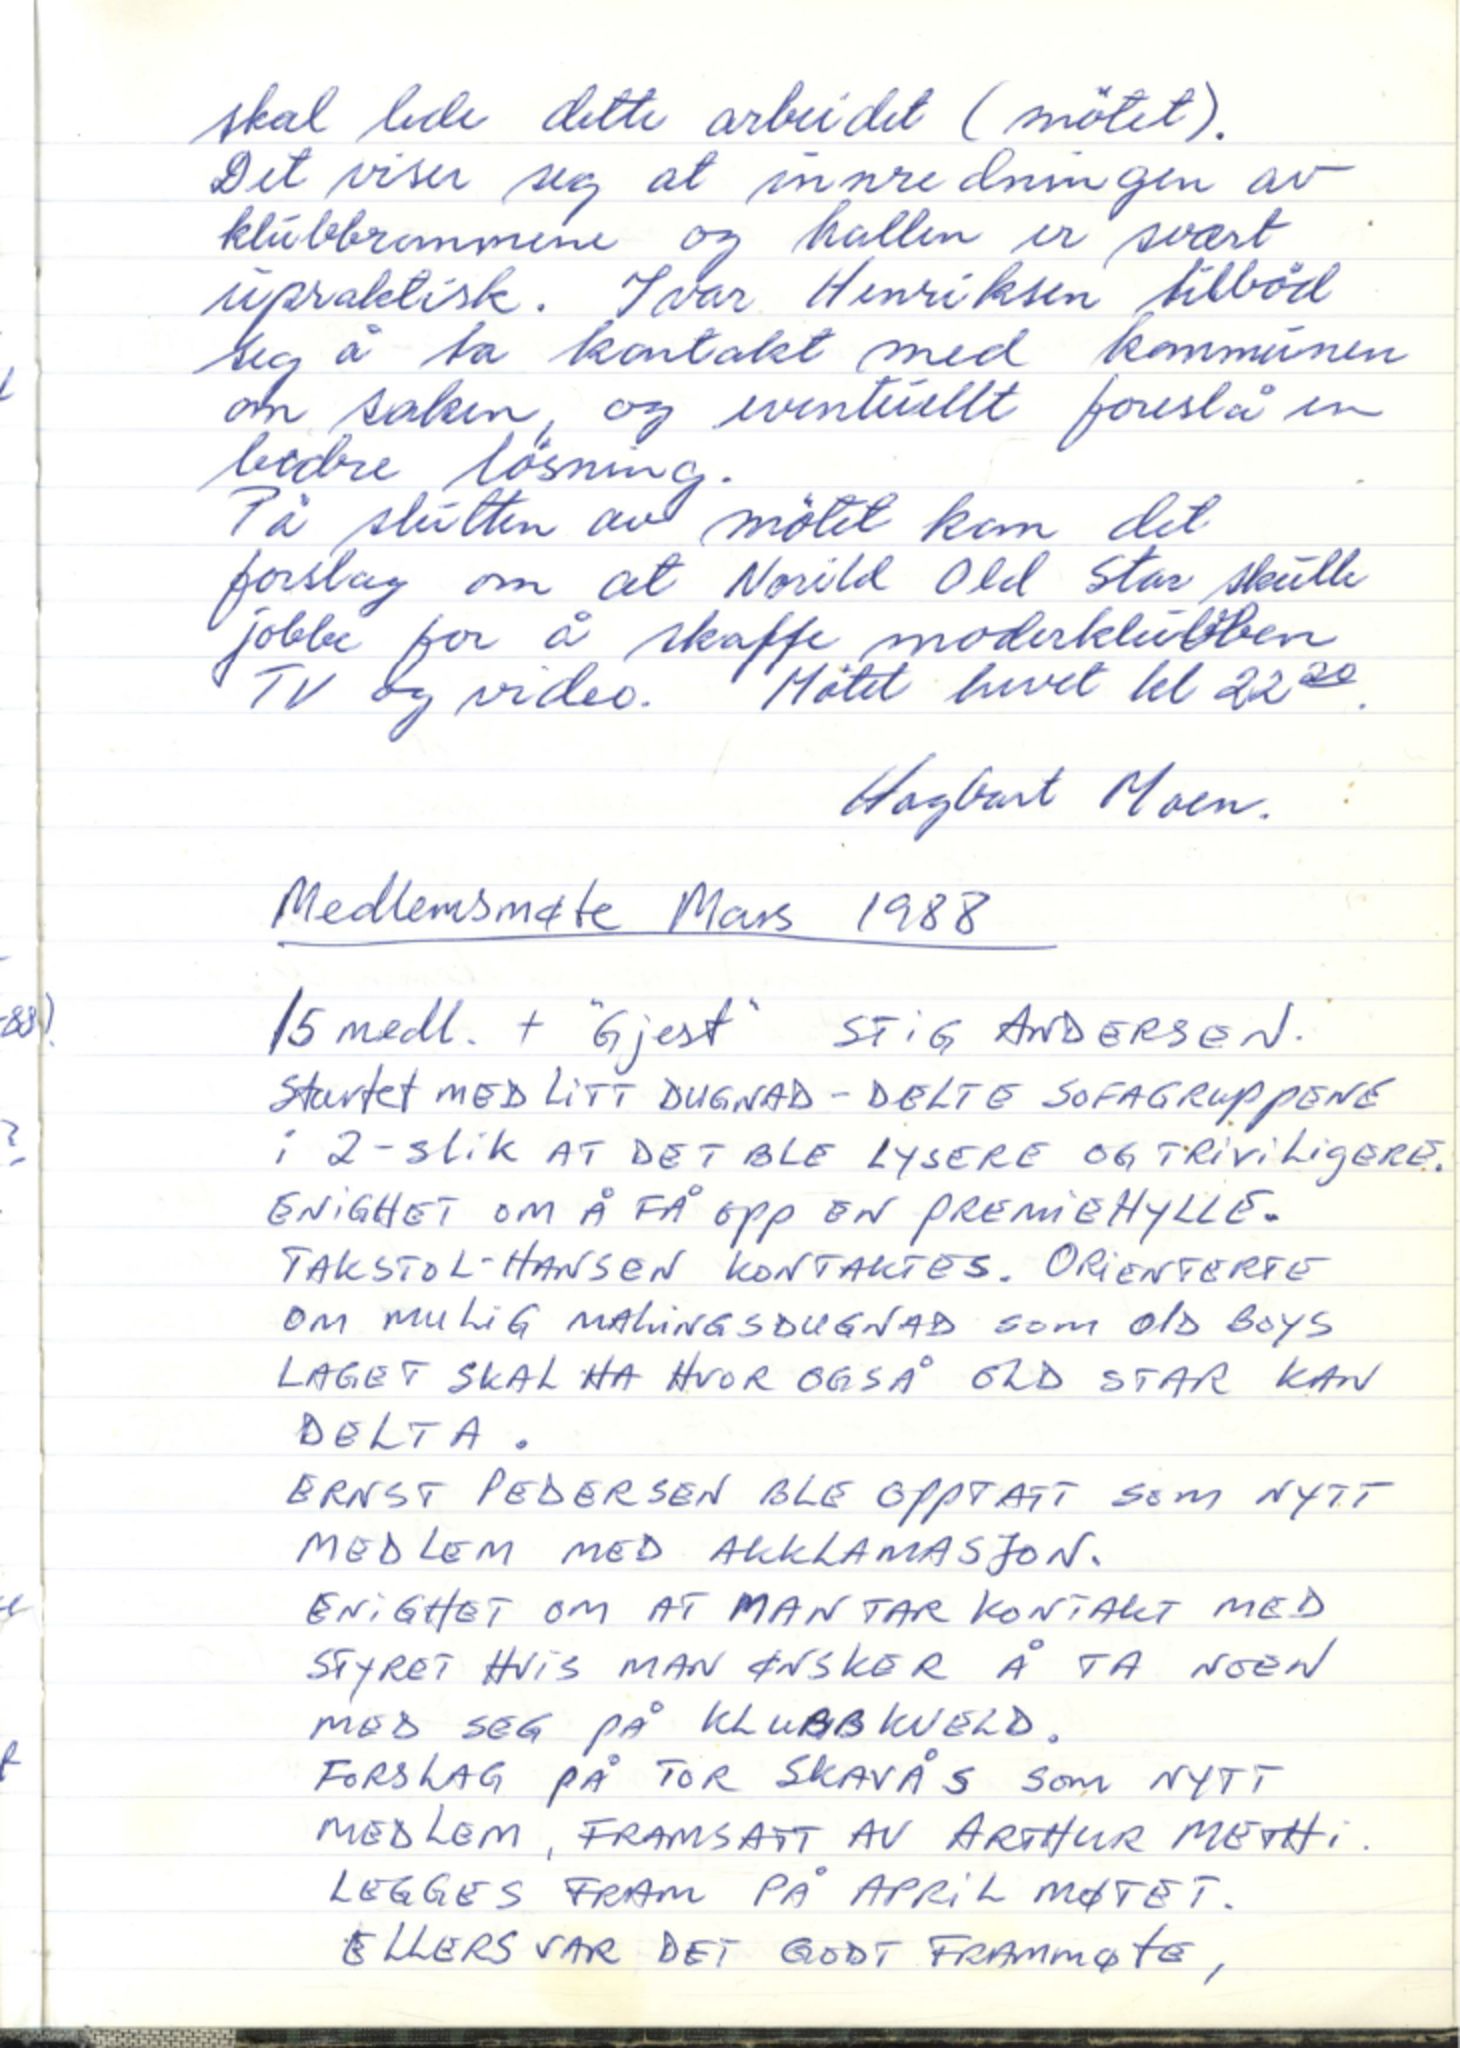 skal lede dette arbeidet (mötet).
Det viser seg at innredningen av
klubbrommene og hallen er svært
upraktisk. Ivar Henriksen tilböd
seg å ta kontakt med kommunen
om saken, og eventuellt foreslå en
bedre lösning.
På slutten av mötet kom det
forslag om at Norild Old Star skulle
jobbe for å skaffe moderklubben
TV og video. Mötet hevet kl 22 20.
Hagbart Moen.
Medlemsmøte Mars 1988
15 medl. + "Gjest" STiG ANDERSEN.
Startet MED LiTT DUGNAD - DELTE SOFAGRUPPENE
i 2 - slik AT DET BLE LYSERE OG TRiViLiGERE.
ENiGHET OM Å FÅ OPP EN PREMiEHYLLE.
TAKSTOL-HANSEN KONTAKTES. ORiENTERTE
OM MULiG MALiNGSDUGNAD SOM OLD BOYS
LAGET SKAL HA HVOR OGSÅ OLD STAR KAN
DELTA.
ERNST PEDERSEN BLE OPPTATT SOM NYTT
MEDLEM MED AKKLAMASJON.
ENiGHET OM AT MAN TAR KONTAKT MED
STYRET HViS MAN ØNSKER Å TA NOEN
MED SEG PÅ KLUBBKVELD.
FORSLAG PÅ TOR SKAVÅS SOM NYTT
MEDLEM, FRAMSATT AV ARTHUR METHi.
LEGGES FRAM PÅ APRiL MØTET.
ELLERS VAR DET GODT FRAMMØTE,